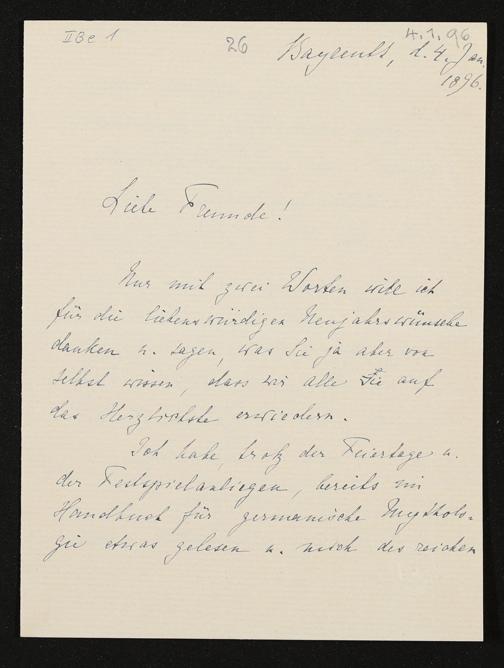 II Be 1
26
4.1.96
Bayreuth, d. 4. Jan.
1896.
Liebe Freunde!
Nur mit zwei Worten will ich
für die liebenswürdigen Neujahrswünsche
danken u. sagen, was Sie ja aber von
selbst wissen, dass wir alle Sie auf
das Herzlichste erwiedern.
Ich habe, trotz der Feiertage u.
der Festspielanliegen, bereits im
Handbuch für germanische Mytholo-
gie etwas gelesen u. mich des reichen